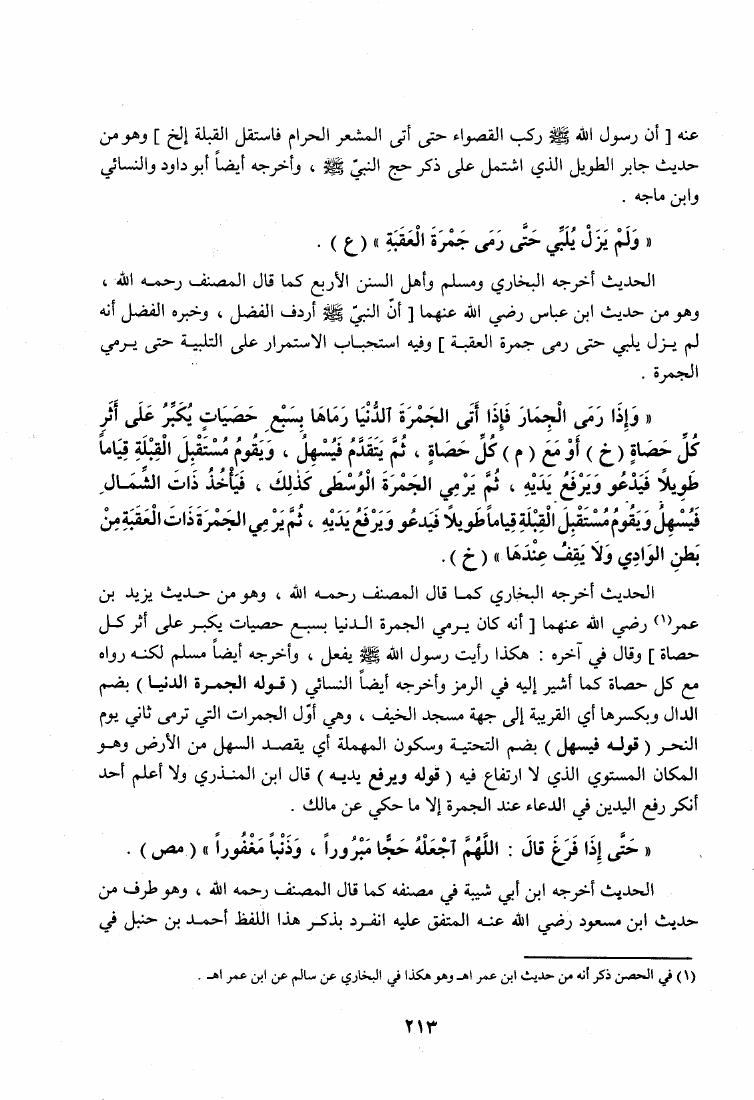 عنه [ أن رسول الله ﷺ ركب القصواء حتى أتى المشعر الحرام فاستقل القبلة إلخ ] وهو من
حديث جابر الطويل الذي اشتمل على ذكر حج النبيّ ﷺ ، وأخرجه أيضاً أبو داود والنسائي
وابن ماجه .
« وَلَمْ يَزَلْ يُلَبِّي حَتَّى رَمَى جَمْرَةَ الْعَقَبَةِ » ( ع ) .
الحديث أخرجه البخاري ومسلم وأهل السنن الأربع كما قال المصنف رحمه الله ،
وهو من حديث ابن عباس رضي الله عنهما [ أنّ النبيّ ﷺ أردف الفضل ، وخبره الفضل أنه
لم يزل يلبي حتى رمى جمرة العقبة ] وفيه استحباب الاستمرار على التلبية حتى يرمي
الجمرة .
« وَإِذَا رَمَى الْجِمَارَ فَإِذَا أَتَى الجَمْرَةَ الدُّنْيَا رَمَاهَا بِسَبْعِ حَصَيَاتٍ يُكَبِّرُ عَلَى أَثَرِ
كُلِّ حَصَاةٍ ( خ ) أَوْ مَعَ ( م ) كُلِّ حَصَاةٍ ، ثُمَّ يَتَقَدَّمُ فَيُسْهِلُ ، وَيَقُومُ مُسْتَقْبِلَ الْقِبْلَةِ قِيَاماً
طَوِيلاً فَيَدْعُو وَيَرْفَعُ يَدَيْهِ ، ثُمَّ يَرْمِي الجَمْرَةَ الْوُسْطَى كَذٰلِكَ ، فَيَأْخُذُ ذَاتَ الشِّمَالِ
فَيُسْهِلُ وَيَقُومُ مُسْتَقْبِلَ الْقِبْلَةِ قِيَاماً طَوِيلاً فَيَدعُو وَيَرْفَعُ يَدَيْهِ ، ثُمَّ يَرْمِي الجَمْرَةَ ذَاتَ الْعَقَبَةِ مِنْ
بَطْنِ الْوَادِي وَلَا يَقِفُ عِنْدَهَا » ( خ ) .
الحديث أخرجه البخاري كما قال المصنف رحمه الله ، وهو من حديث يزيد بن
عمر(١) رضي الله عنهما [ أنه كان يرمي الجمرة الدنيا بسبع حصيات يكبر على أثر كل
حصاة ] وقال في آخره : هكذا رأيت رسول الله ﷺ يفعل ، وأخرجه أيضاً مسلم لكنه رواه
مع كل حصاة كما أشير إليه في الرمز وأخرجه أيضاً النسائي ( قوله الجمرة الدنيا ) بضم
الدال وبكسرها أي القريبة إلى جهة مسجد الخيف ، وهي أوّل الجمرات التي ترمى ثاني يوم
النحر ( قوله فيسهل ) بضم التحتية وسكون المهملة أي يقصد السهل من الأرض وهو
المكان المستوي الذي لا ارتفاع فيه ( قوله ويرفع يديه ) قال ابن المنذري ولا أعلم أحد
أنكر رفع اليدين في الدعاء عند الجمرة إلا ما حكي عن مالك .
« حَتَّى إِذَا فَرَغَ قَالَ : اللَّهُمَّ ٱجْعَلْهُ حَجًّا مَبْرُوراً ، وَذَنْباً مَغْفُوراً » ( مص ) .
الحديث أخرجه ابن أبي شيبة في مصنفه كما قال المصنف رحمه الله ، وهو طرف من
حديث ابن مسعود رضي الله عنه المتفق عليه انفرد بذكر هذا اللفظ أحمد بن حنبل في
(١) في الحصن ذكر أنه من حديث ابن عمر اهـ وهو هكذا في البخاري عن سالم عن ابن عمر اهـ .
٢١٣